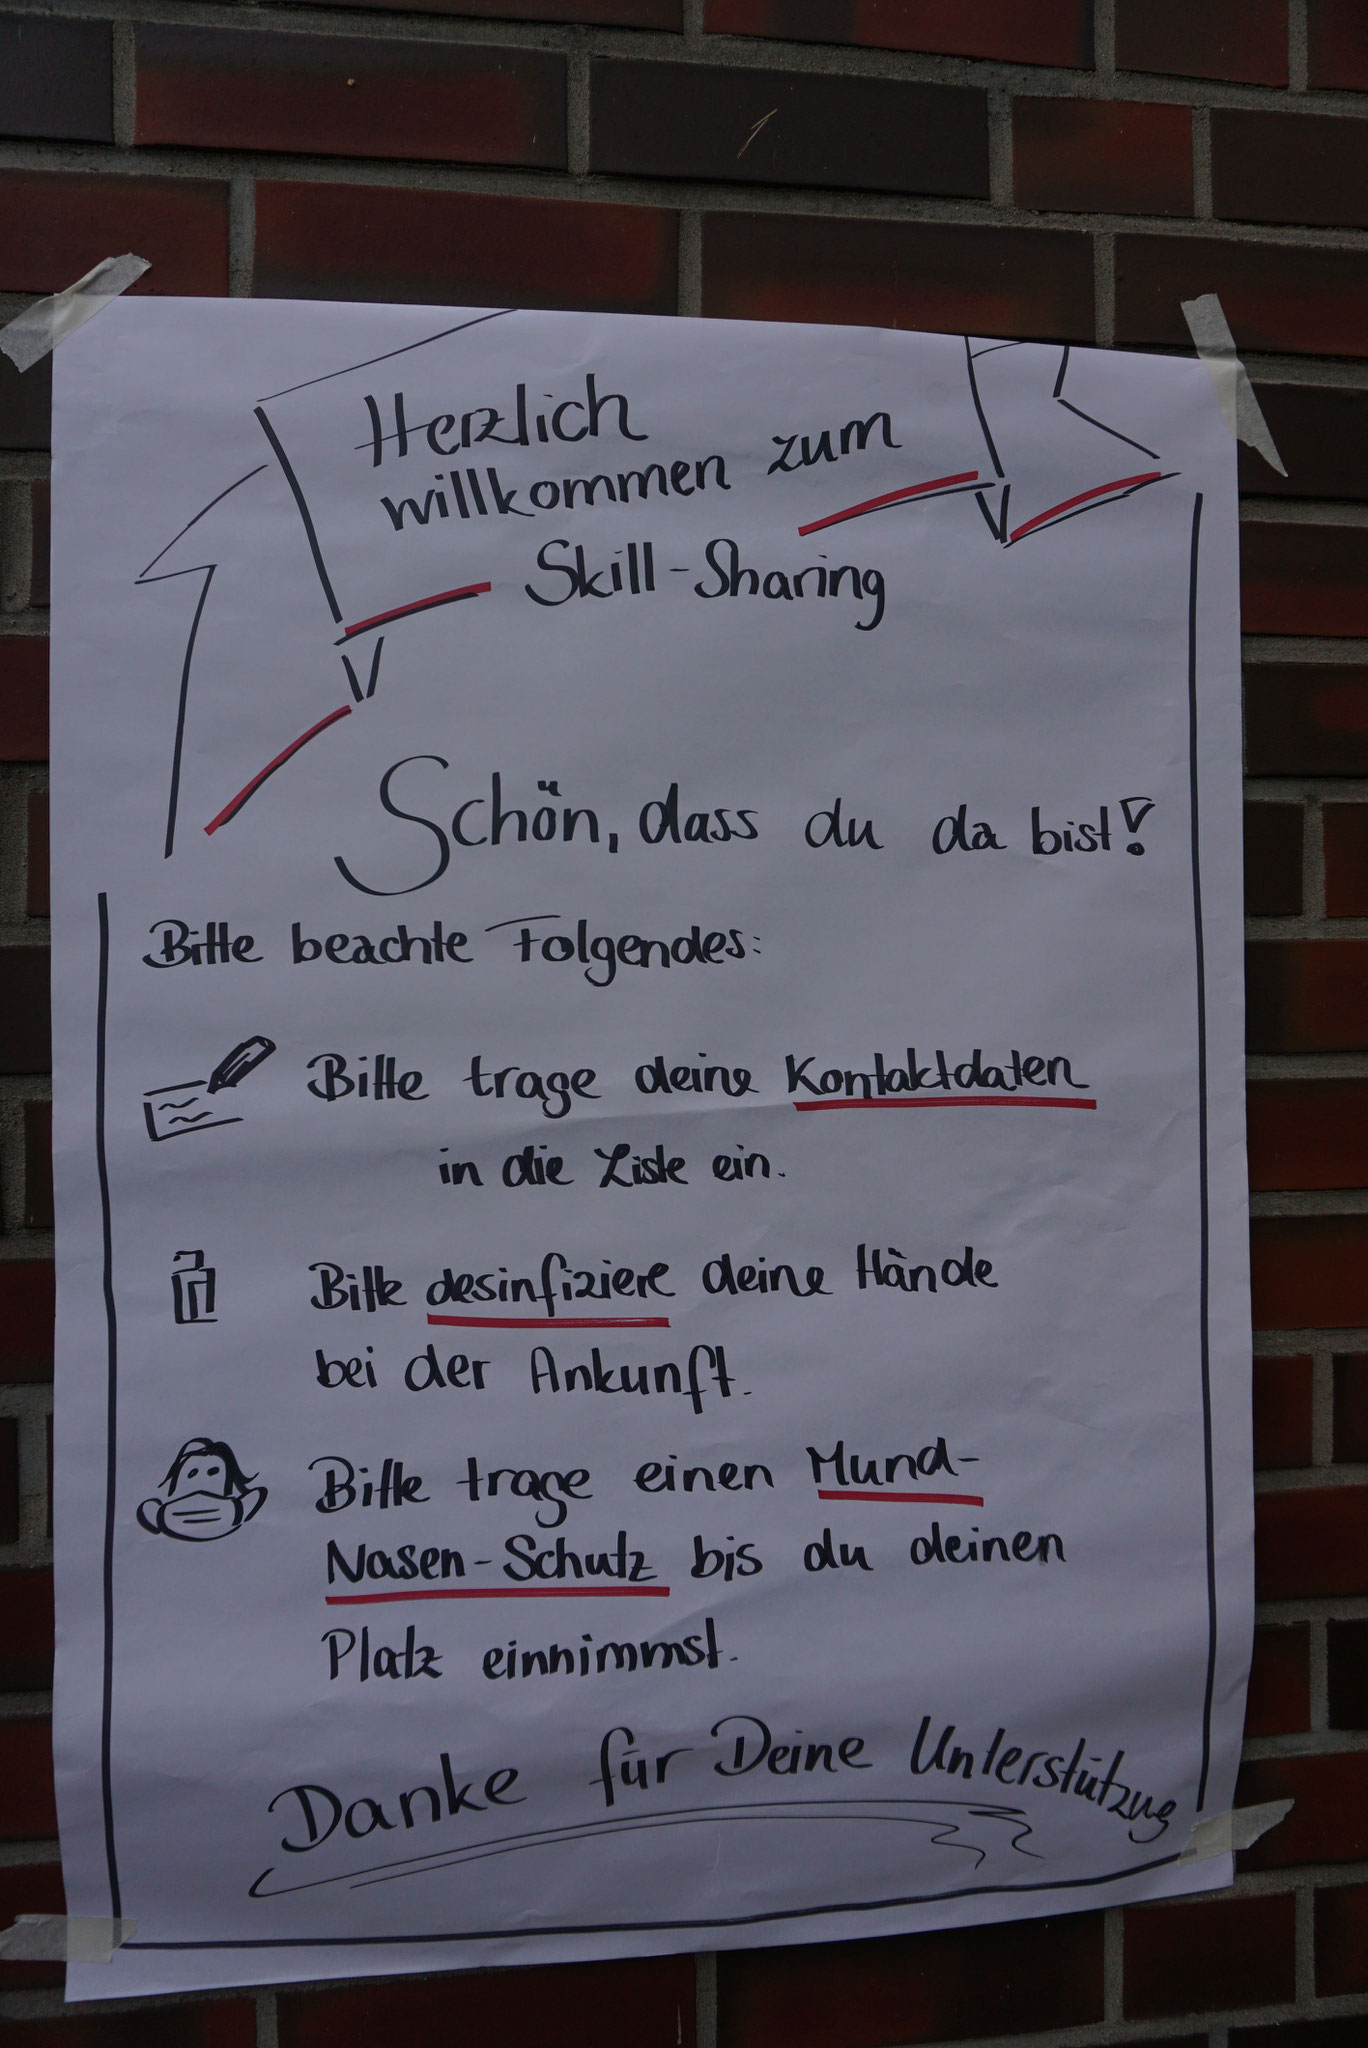 Herzlich
willkommen zum
Skill-Sharing
Schön, dass du da bist!
Bitte beachte Folgendes:
Bitte trage deine Kontaktdaten
in die Liste ein.
Bitte desinfiziere deine Hände
bei der Ankunft.
Bitte trage einen Mund-
Nasen-Schutz bis du deinen
Platz einnimmst.
Danke für Deine Unterstützug